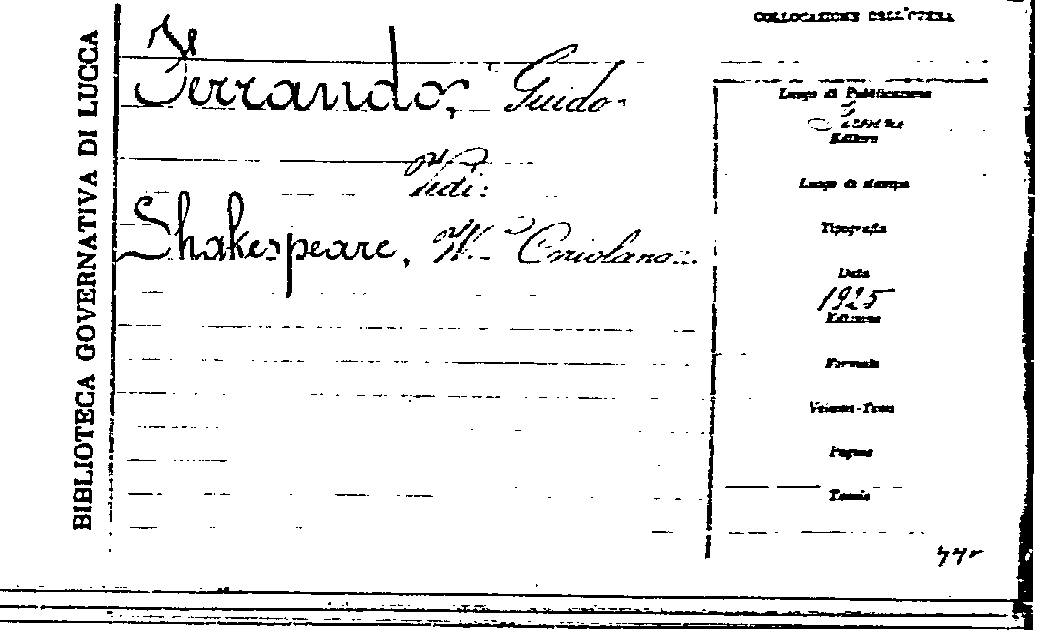 BIBLIOTECA GOVERNATIVA DI LUCCA
Ferrando, Guido.
Vedi:
Shakespeare, W. Coriolano.
COLLOCAZIONE DELL'OPERA
Luogo di Pubblicazione
Editore
Luogo di stampa
Tipografia
Data
1925
Edizione
Formato
Volumi-Tomi
Pagine
Tavole